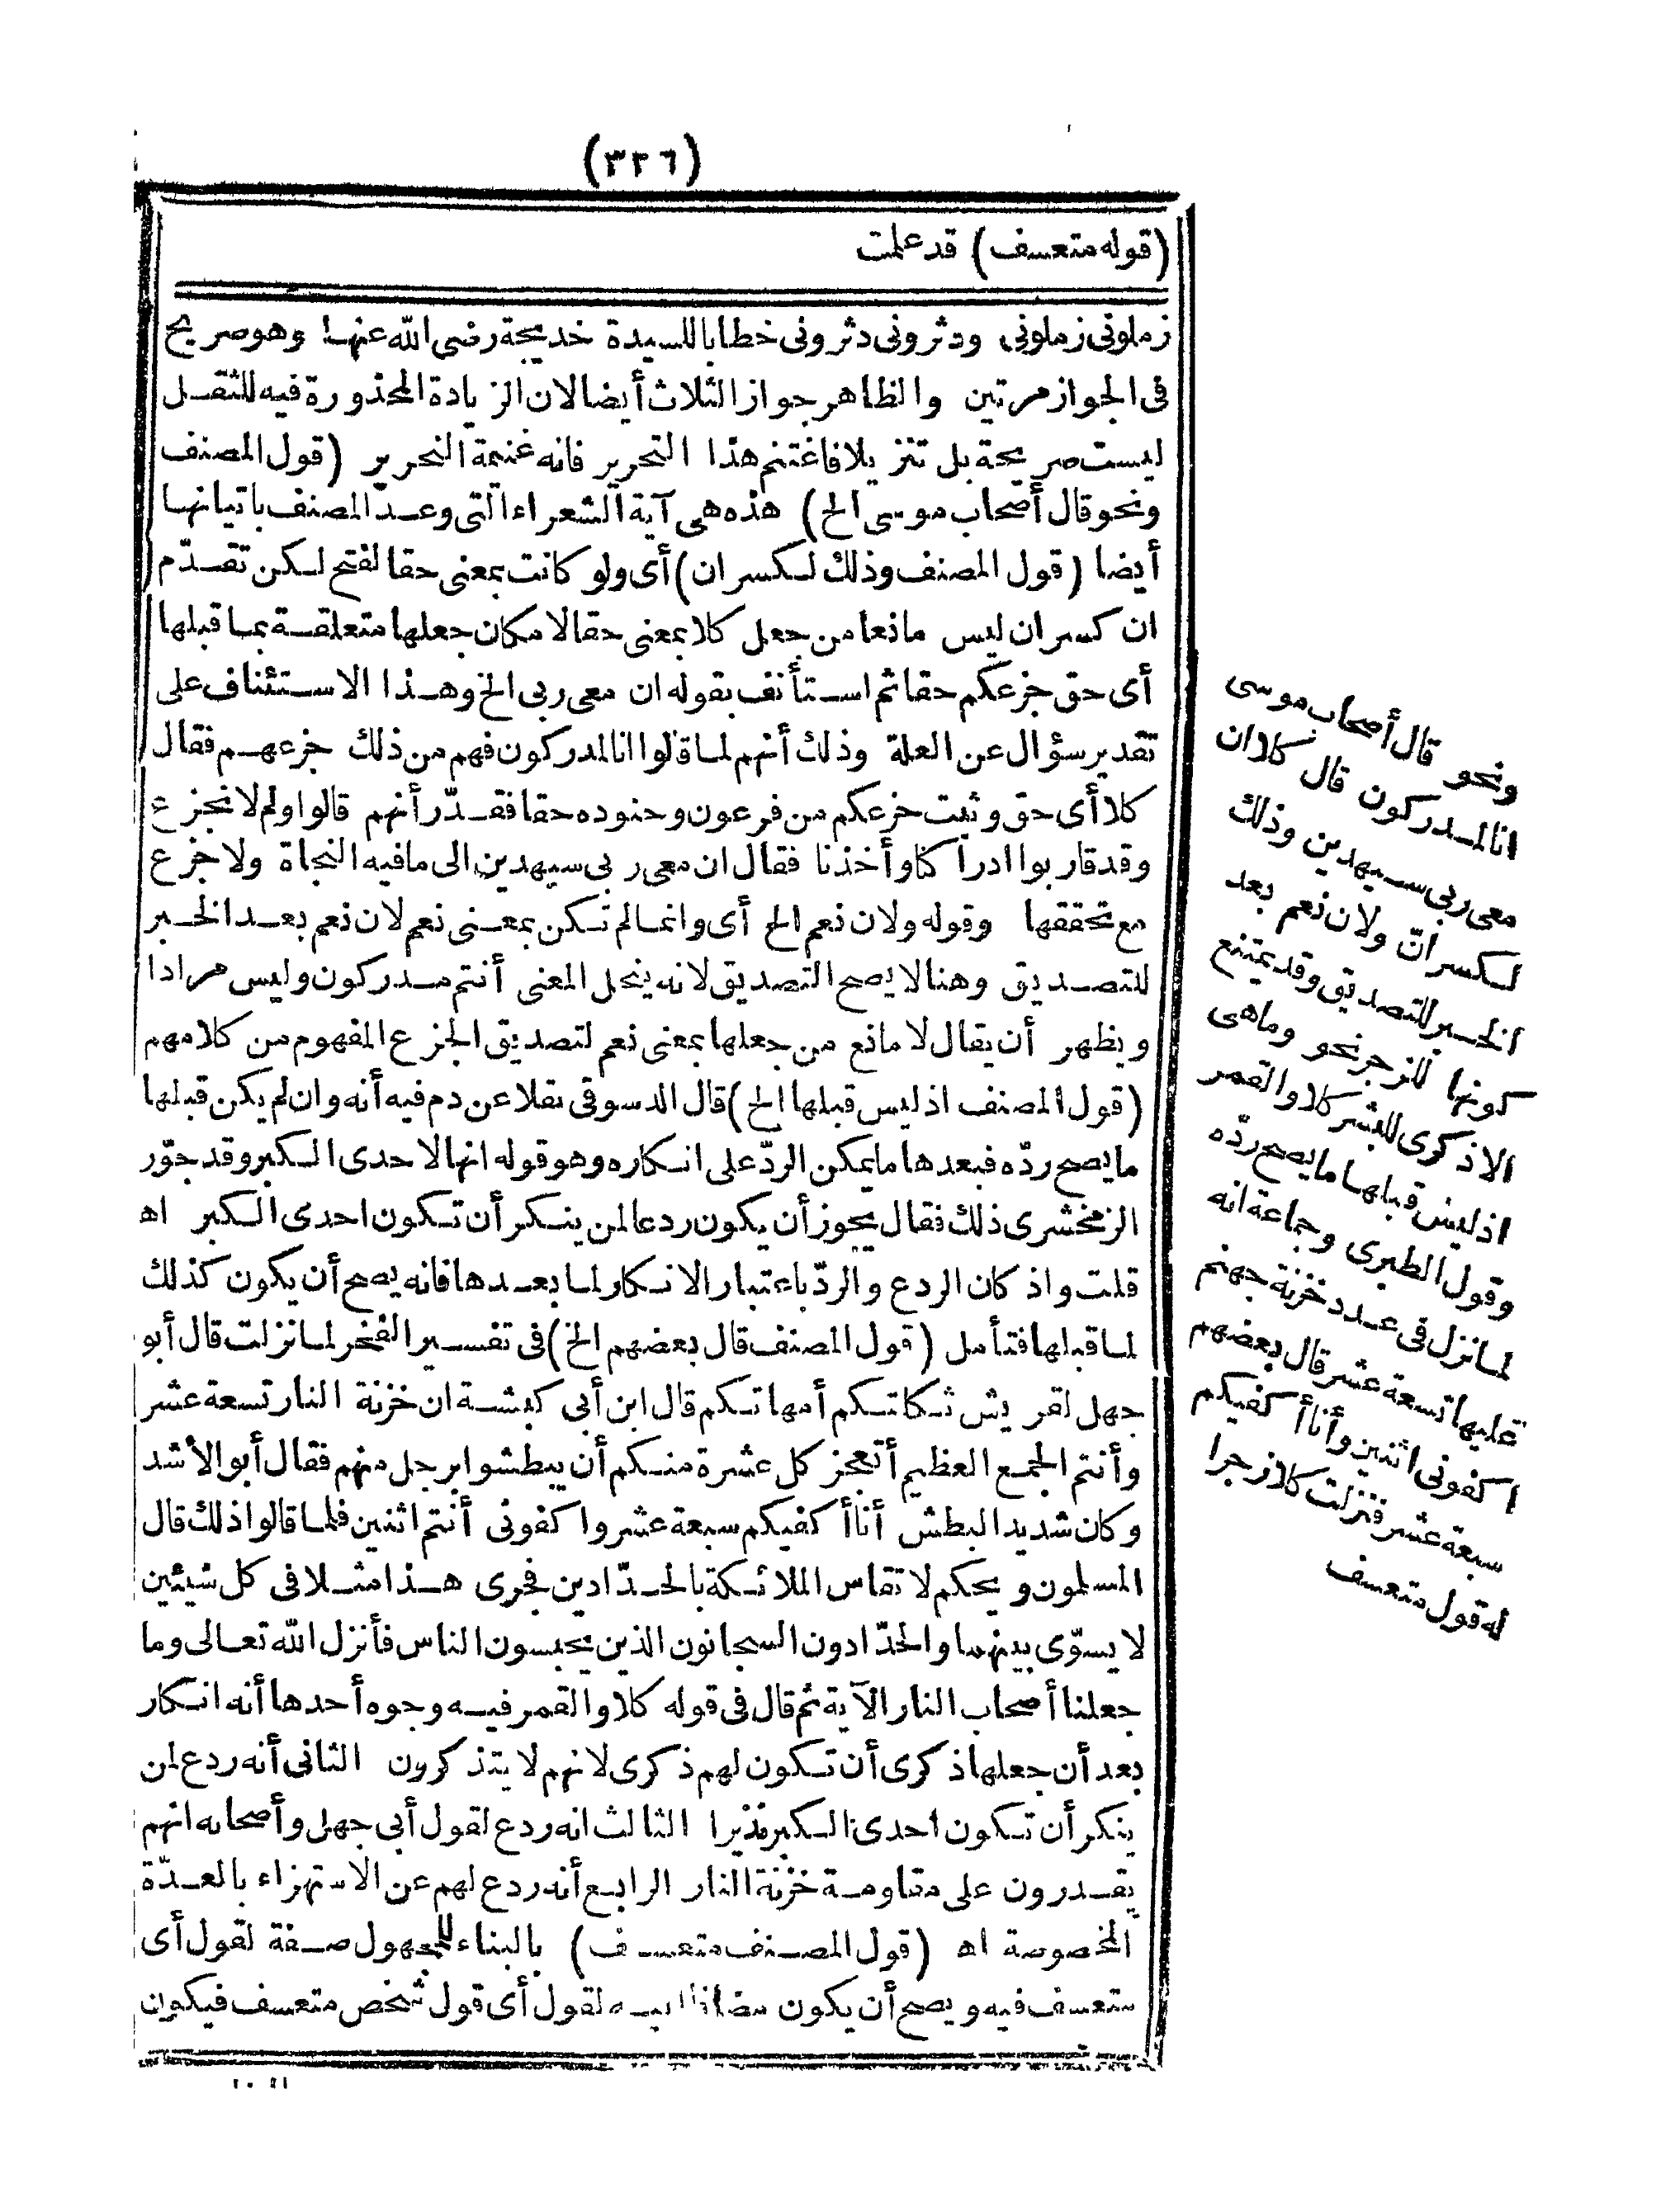 (٣٢٦)
(قوله متعسف) قد علمت
زملونى زملونى ودثرونى دثرونى خطابا للسيدة خديجة رضى الله عنها وهو صريح
فى الجواز مرتين والظاهر جواز الثلاث أيضا لان الزيادة المحذورة فيه للثقل
ليست صريحة بل تنزيلا فاغتنم هذا التحرير فانه غنيمة النحرير (قول المصنف
ونحو قال أصحاب موسى الخ) هذه هى آية الشعراء التى وعد المصنف باتيانها
أيضا (قول المصنف وذلك لكسر ان) أى ولو كانت بمعنى حقا لفتح لكن تقدّم
ان كسر ان ليس مانعا من جعل كلا بمعنى حقا لامكان جعلها متعلقة بما قبلها
أى حق جزعكم حقا ثم استأنف بقوله ان معى ربى الخ وهذا الاستئناف على
تقدير سؤال عن العلة وذلك أنهم لما قالوا انا لمدركون فهم من ذلك جزعهم فقال
كلا أى حق وثبت جزعكم من فرعون وجنوده حقا فقدّر أنهم قالوا ولم لا نجزع
وقد قاربوا ادراكا وأخذنا فقال ان معى ربى سيهدين الى ما فيه النجاة ولا جزع
مع تحققها وقوله ولان نعم الخ أى وانما لم تكن بمعنى نعم لان نعم بعد الخبر
للتصديق وهنا لا يصح التصديق لانه ينحل المعنى أنتم مدركون وليس مرادا
ويظهر أن يقال لا مانع من جعلها بمعنى نعم لتصديق الجزع المفهوم من كلامهم
(قول المصنف اذ ليس قبلها الخ) قال الدسوقى نقلا عن دم فيه أنه وان لم يكن قبلها
ما يصح ردّه فبعدها ما يمكن الردّ على انكاره وهو قوله انها لاحدى الكبر وقد جوّز
الزمخشرى ذلك فقال يجوز أن يكون ردعا لمن ينكر أن تكون احدى الكبر اه
قلت واذ كان الردع والردّ باعتبار الانكار لما بعدها فانه يصح أن يكون كذلك
لما قبلها فتأمل (قول المصنف قال بعضهم الخ) فى تفسير الفخر لما نزلت قال أبو
جهل لقريش ثكلتكم أمهاتكم قال ابن أبى كبشة ان خزنة النار تسعة عشر
وأنتم الجمع العظيم أتعجز كل عشرة منكم أن يبطشوا برجل منهم فقال أبو الأشد
وكان شديد البطش أنا أكفيكم سبعة عشر واكفونى أنتم اثنين فلما قالوا ذلك قال
المسلمون ويحكم لا تقاس الملائكة بالحدّادين فجرى هذا مثلا فى كل شيئين
لا يسوّى بينهما والحدّادون السجانون الذين يحبسون الناس فأنزل الله تعالى وما
جعلنا أصحاب النار الآية ثم قال فى قوله كلا والقمر فيه وجوه أحدها أنه انكار
بعد أن جعلها ذكرى أن تكون لهم ذكرى لانهم لا يتذكرون الثانى أنه ردع لمن
ينكر أن تكون احدى الكبر نذيرا الثالث انه ردع لقول أبى جهل وأصحابه انهم
يقدرون على مقاومة خزنة النار الرابع أنه ردع لهم عن الاستهزاء بالعدّة
المخصوصة اه (قول المصنف متعسف) بالبناء للمجهول صفة لقول أى
متعسف فيه ويصح أن يكون مضافا اليه لقول أى قول شخص متعسف فيكون
ونحو قال أصحاب موسى
انا لمدركون قال كلا ان
معى ربى سيهدين وذلك
لكسر انّ ولان نعم بعد
الخبر للتصديق وقد يمتنع
كونها للزجر نحو وما هى
الا ذكرى للبشر كلا والقمر
اذ ليس قبلها ما يصح ردّه
وقول الطبرى وجماعة انه
لما نزل فى عدد خزنة جهنم
عليها تسعة عشر قال بعضهم
اكفونى اثنين وأنا أكفيكم
سبعة عشر فنزلت كلا زجرا
له قول متعسف